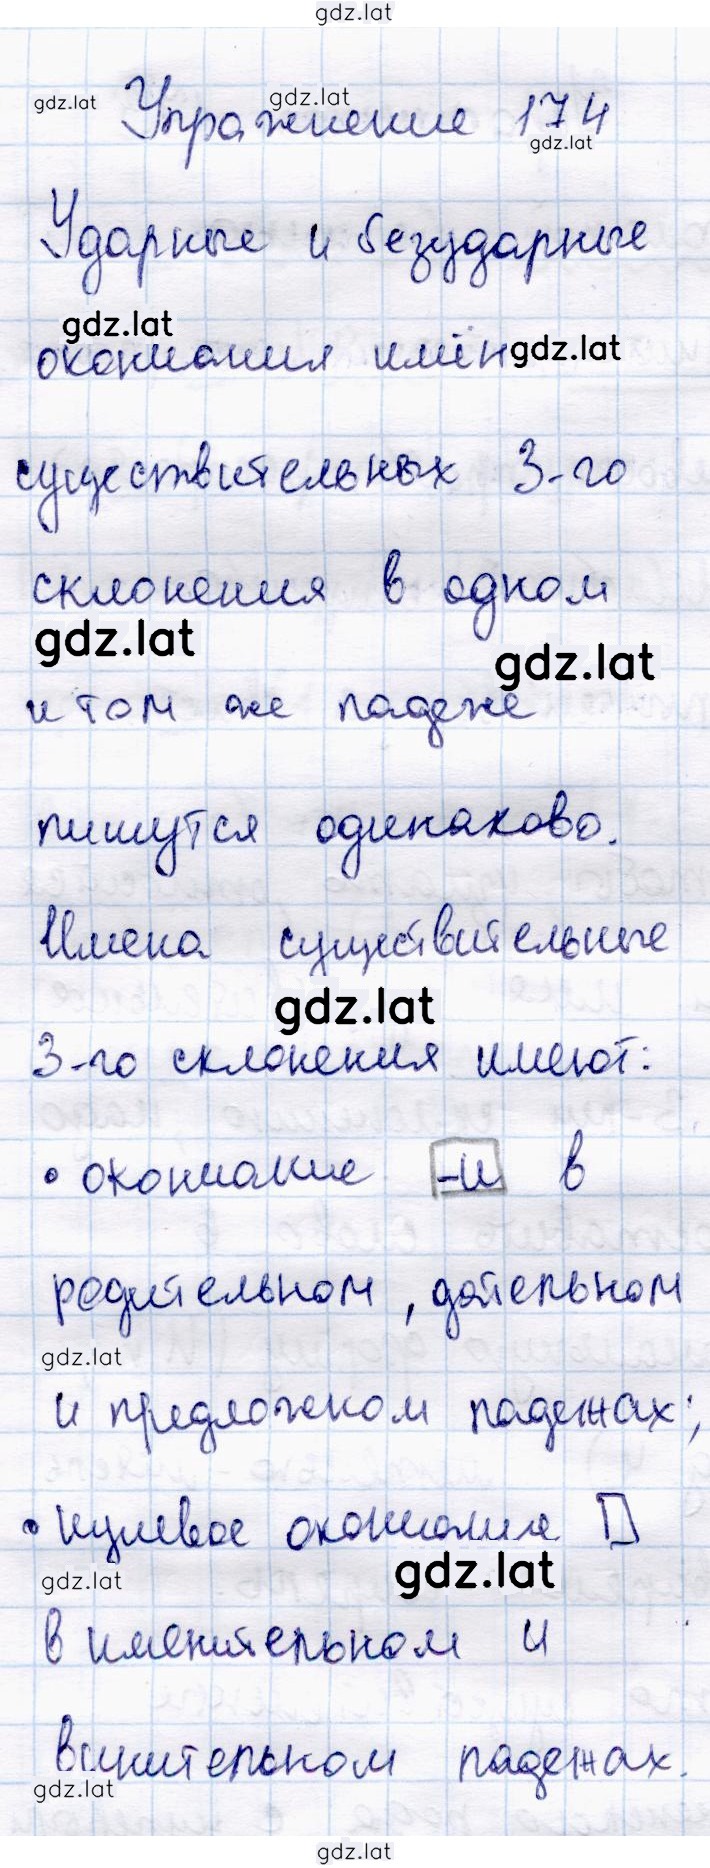 gdz.lat
gdz.lat
gdz.lat
Упражнение 174
gdz.lat
Ударные и безударные
gdz.lat
окончания имён
gdz.lat
существительных 3-го
склонения в одном
gdz.lat
gdz.lat
и том же падеже
пишутся одинаково.
Имена существительные
gdz.lat
3-го склонения имеют:
• окончание -и в
родительном, дательном
gdz.lat
и предложном падежах;
• нулевое окончание
gdz.lat
gdz.lat
в именительном и
винительном падежах.
gdz.lat
gdz.lat